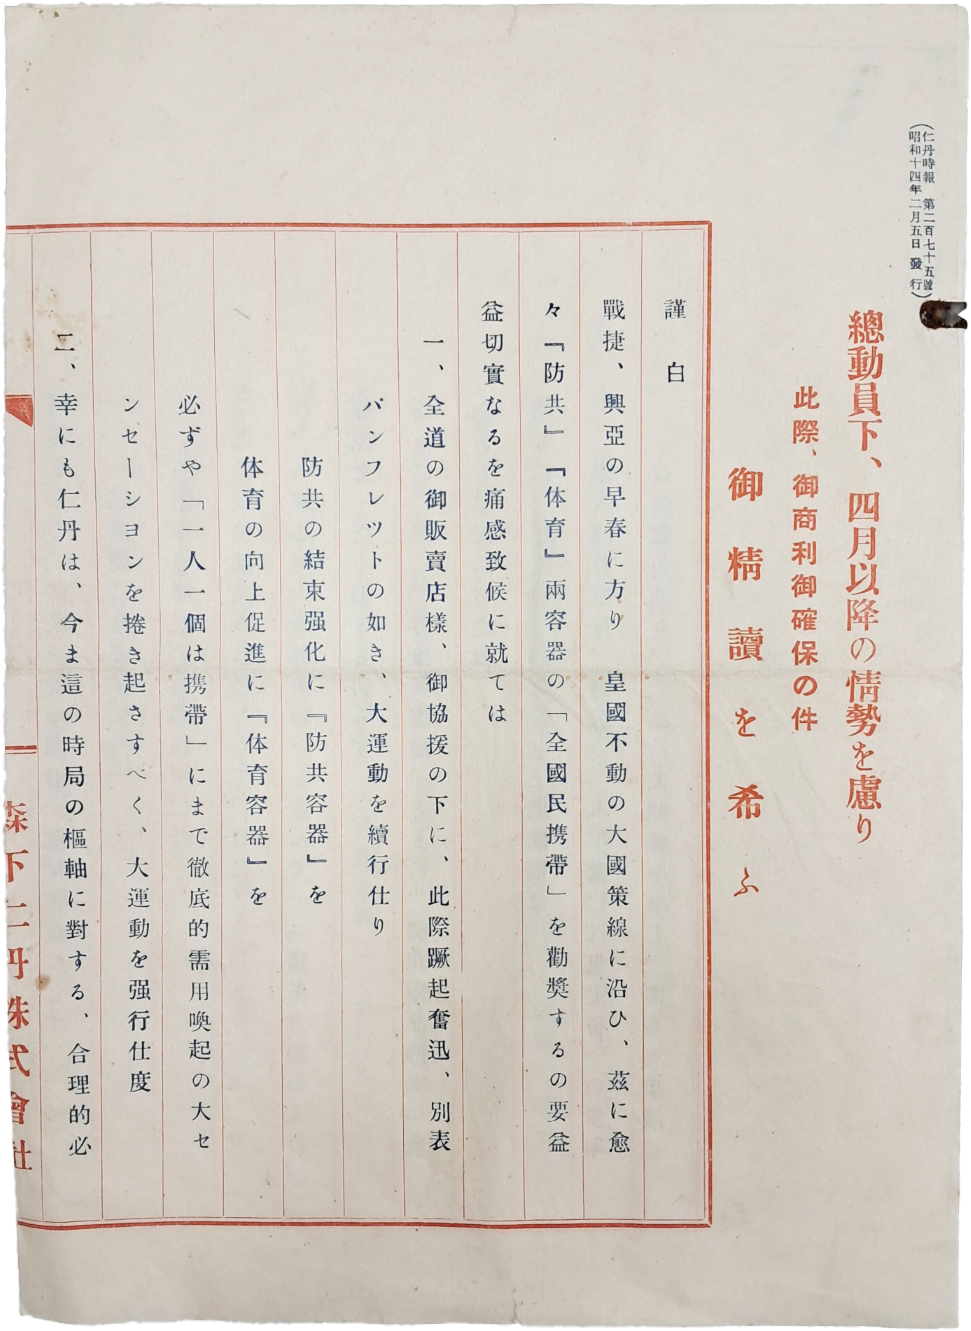 (仁丹時報 第二百七十五號
昭和十四年二月五日 發行)
總動員下、四月以降の情勢を慮り
此際、御商利御確保の件
御精讀を希ふ
謹白
戰捷、興亞の早春に方り 皇國不動の大國策線に沿ひ、茲に愈
々『防共』『体育』兩容器の「全國民携帶」を勸奬するの要益
益切實なるを痛感致候に就ては
一、全道の御販賣店樣、御協援の下に、此際蹶起奮迅、別表
パンフレツトの如き、大運動を續行仕り
防共の結束强化に『防共容器』を
体育の向上促進に『体育容器』を
必ずや「一人一個は携帶」にまで徹底的需用喚起の大セ
ンセーシヨンを捲き起さすべく、大運動を强行仕度
二、幸にも仁丹は、今ま這の時局の樞軸に對する、合理的必
森下仁丹株式會社